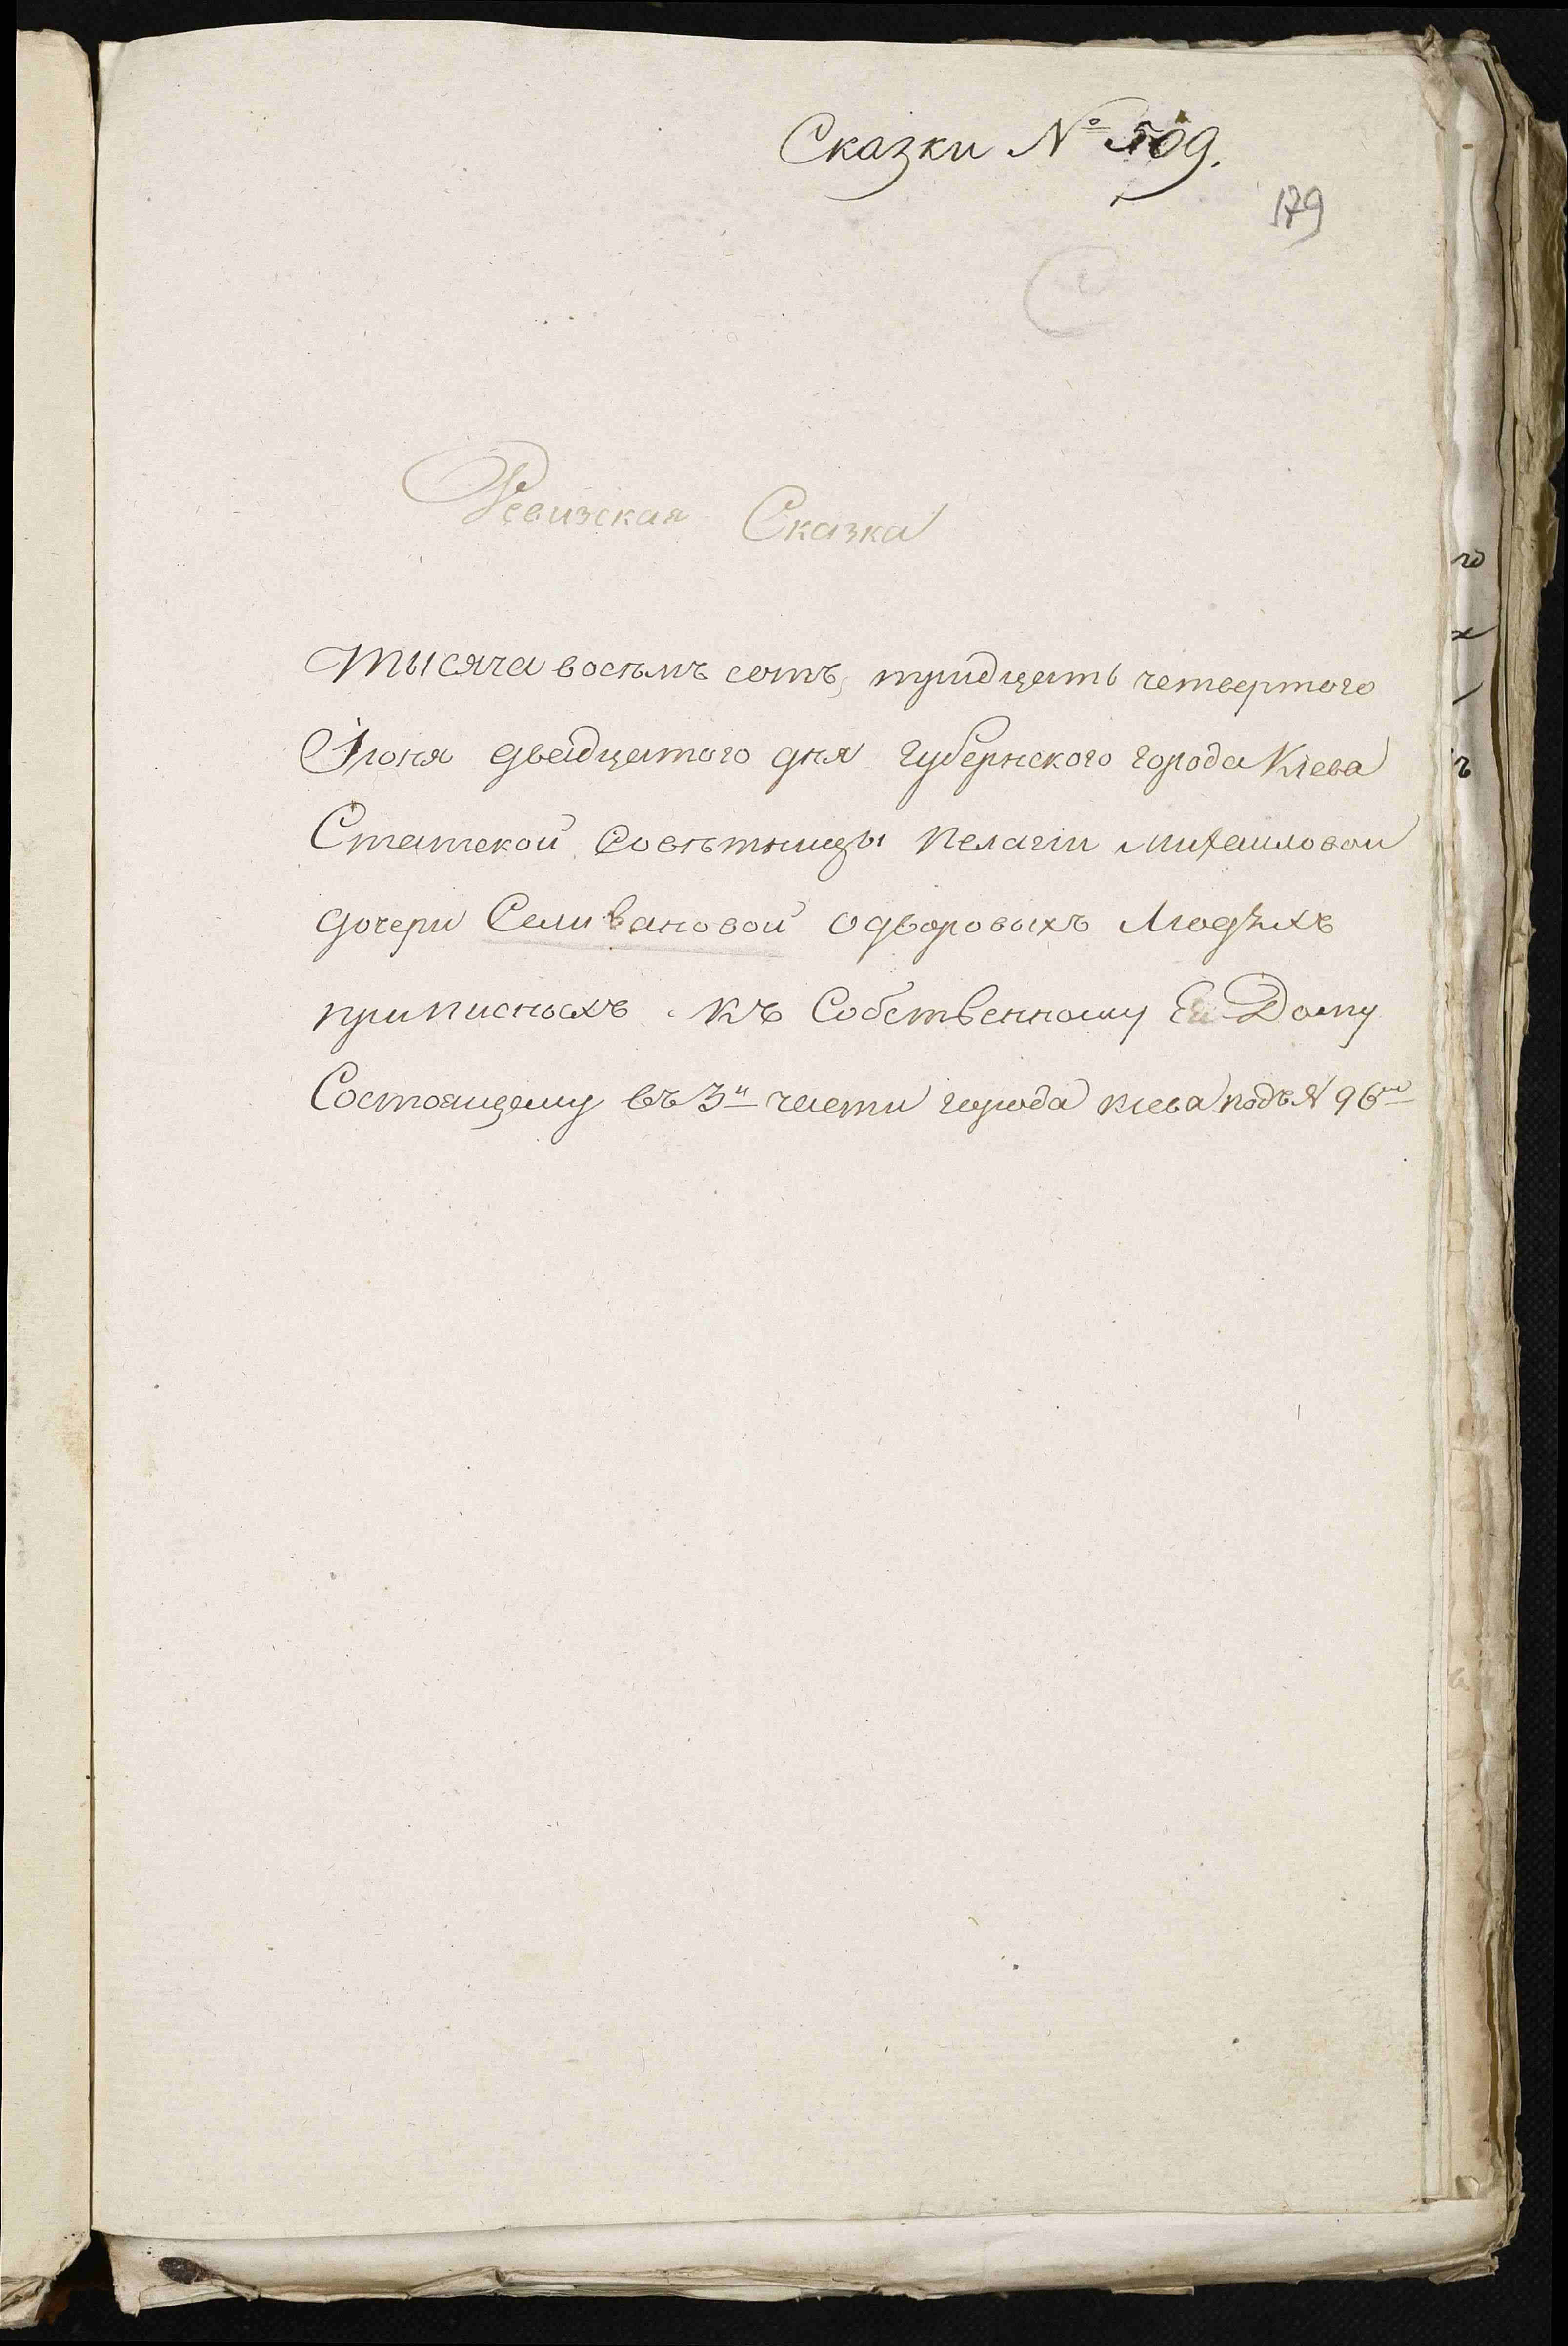 Сказки № 509.
179
Ревизская Сказка
Тысяча восѣмъ сотъ, тридцать четвертого
Іюня двадцатого дня губернского города Кіева
Статской Совѣтницы Пелагіи Михаиловой
дочери Селивановой одворовыхъ Людѣхъ
приписныхъ къ Собственному Ея Дому
Состоящему въ 3й части города Кіева подъ № 96м